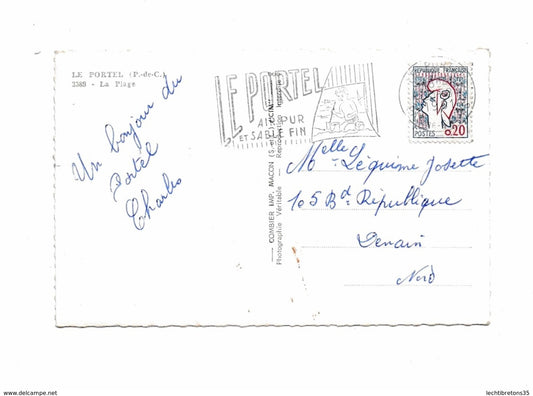 LE PORTEL (P.-de-C.)
2389 - La Plage
Un bonjour du
Portel
Charles
COMBIER IMP. MACON
Photographie Véritable
LE PORTEL
AIR PUR
ET SABLE FIN
RÉPUBLIQUE FRANÇAISE
POSTES 0,20
Melle Léquime Josette
105 Bd République
Denain
Nord
www.delcampe.net
lechtibretons35